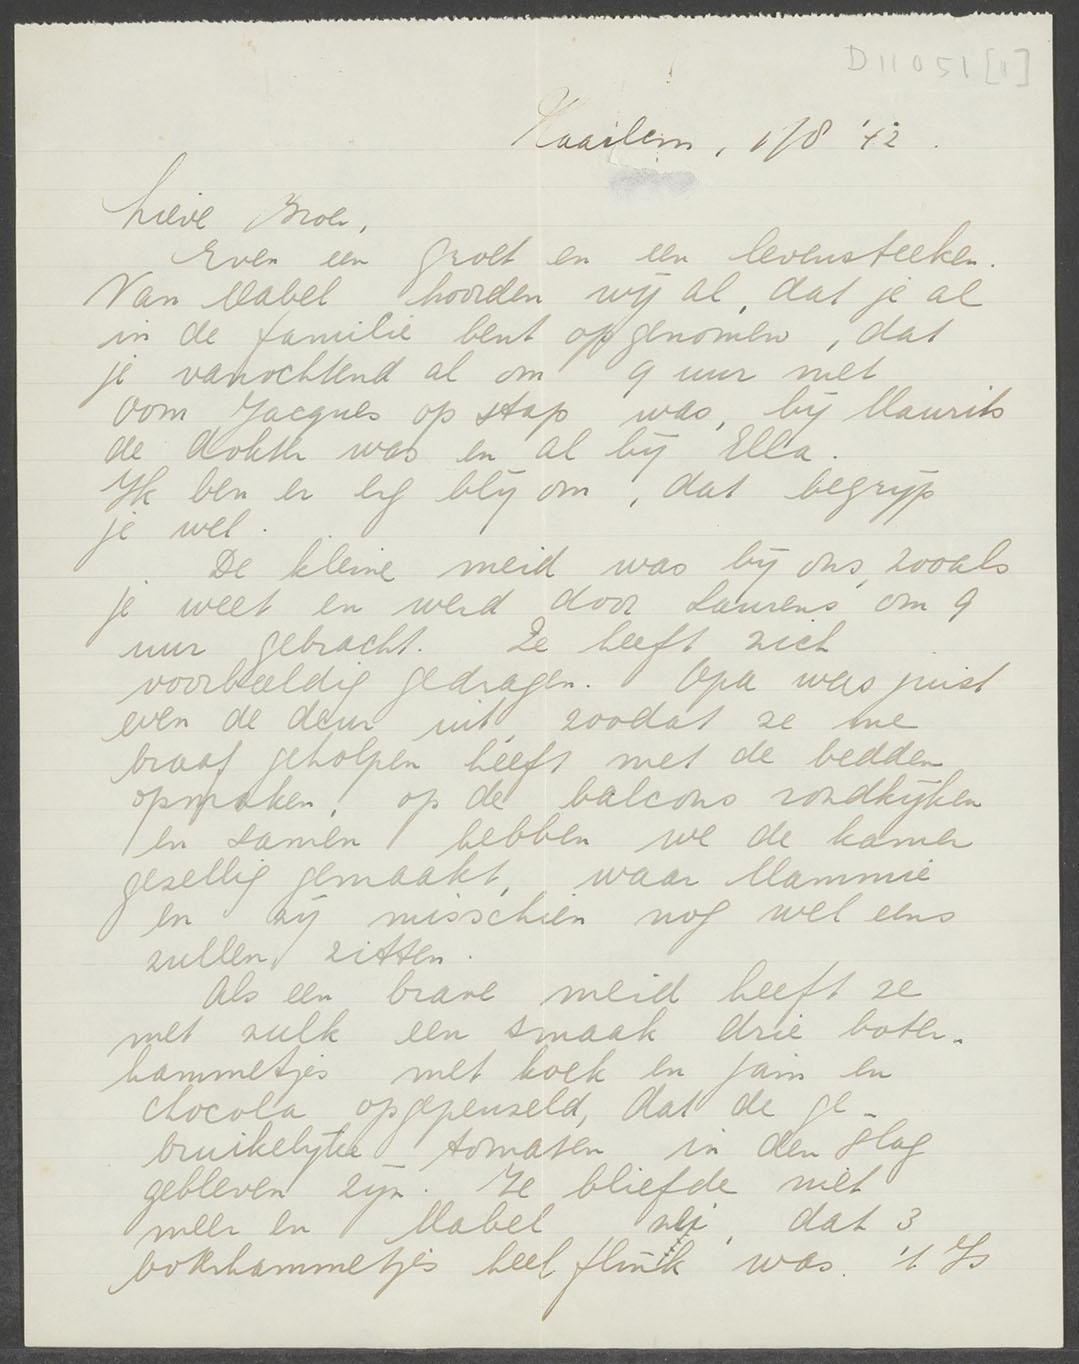 D11051 [1]
Haarlem, 1/8 '42.
Lieve Broer,
Even een groet en een levensteeken.
Van Mabel hoorden wij al, dat je al
in de familie bent opgenomen, dat
je vanochtend al om 9 uur met
Oom Jacques op stap was, bij Maurits
de dokter was en al bij Ella.
Ik ben er erg blij om, dat begrijp
je wel.
De kleine meid was bij ons, zooals
je weet en werd door Laurens om 9
uur gebracht. Ze heeft zich
voorbeeldig gedragen. Opa was juist
even de deur uit, zoodat ze me
braaf geholpen heeft met de bedden
opmaken, op de balcons rondkijken
en samen hebben we de kamer
gezellig gemaakt, waar Mammie
en zij misschien nog wel eens
zullen zitten.
Als een brave meid heeft ze
met zulk een smaak drie boter-
hammetjes met koek en jam en
chocola opgepeuzeld, dat de ge-
bruikelijke tomaten in den slag
gebleven zijn. Ze bliefde niet
meer en Mabel zei, dat 3
boterhammetjes heel flink was. 't Is